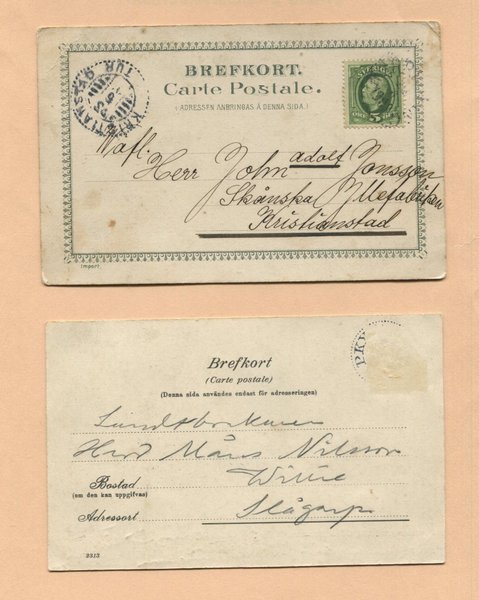 BREFKORT.
Carte Postale.
(ADRESSEN ANBRINGAS Å DENNA SIDA.)
SVERIGE
5 ÖRE 5
KRISTIANSTAD
TUR
Herr John adolf Jonsson
Skånska Yllefabriken
Kristianstad
(Import)
Brefkort
(Carte postale)
(Denna sida användes endast för adresseringen)
PKP
Herr Måns Nilsson
Bostad
(om den kan uppgifvas)
Adressort
Slågarp
2313